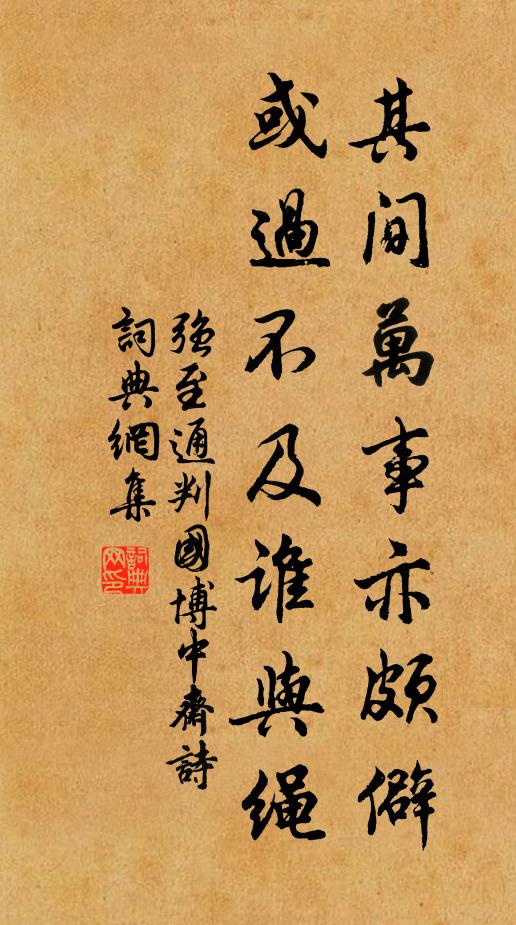 其間萬事亦頗僻
或過不及誰與繩
強至通判國博中齋詩
詞典網集
詞典網印